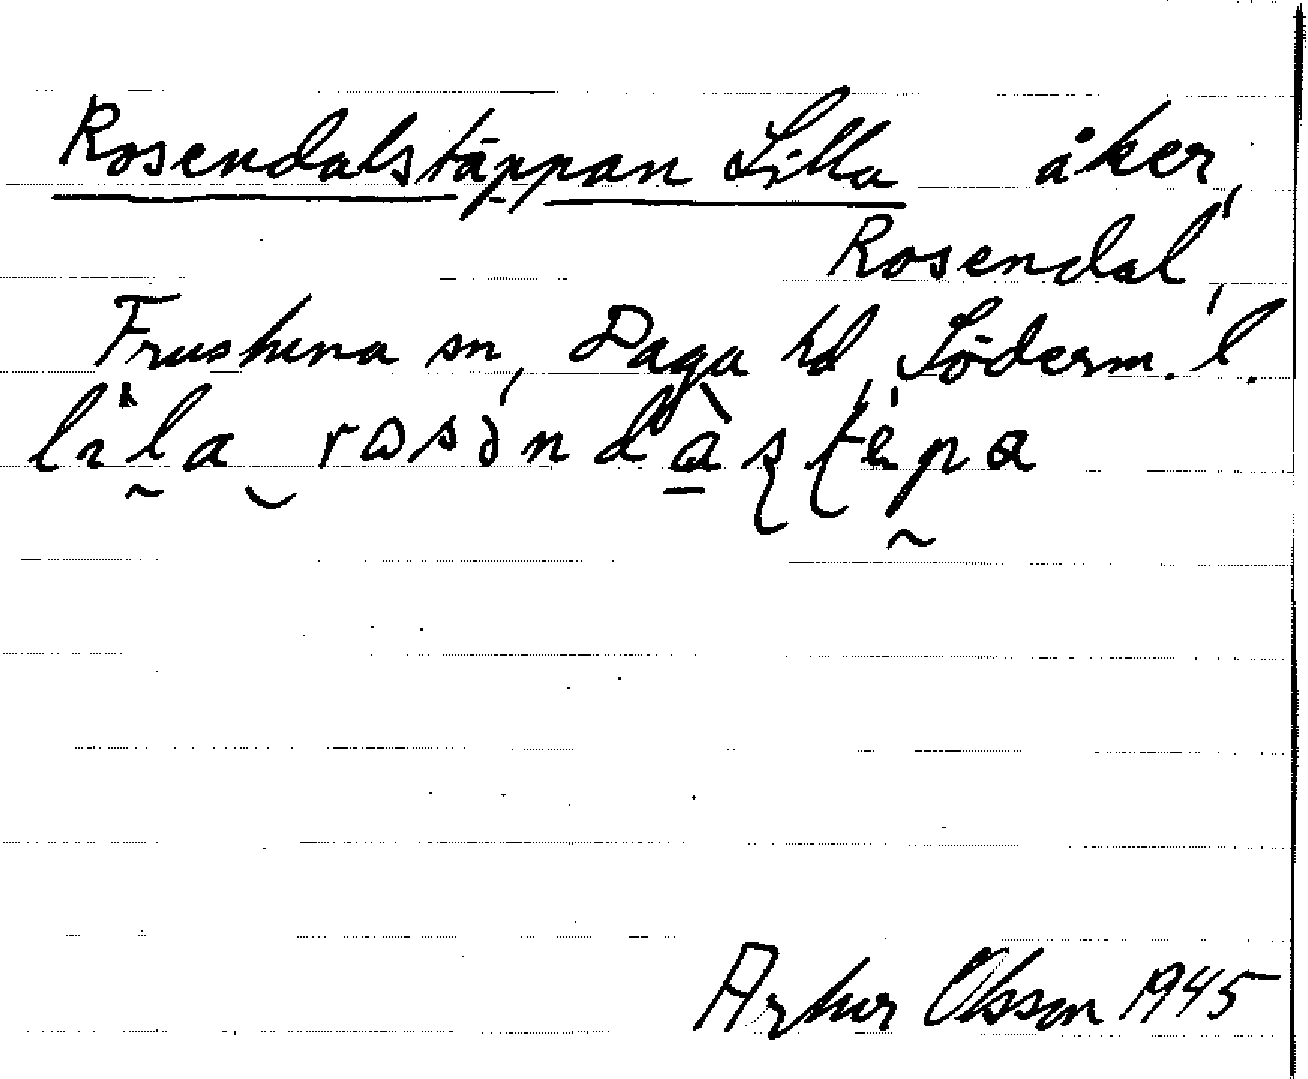 Rosendalstäppan Lilla åker,
Rosendal,
Frustuna sn, Daga hd, Söderm. l.
Artur Olsson 1945